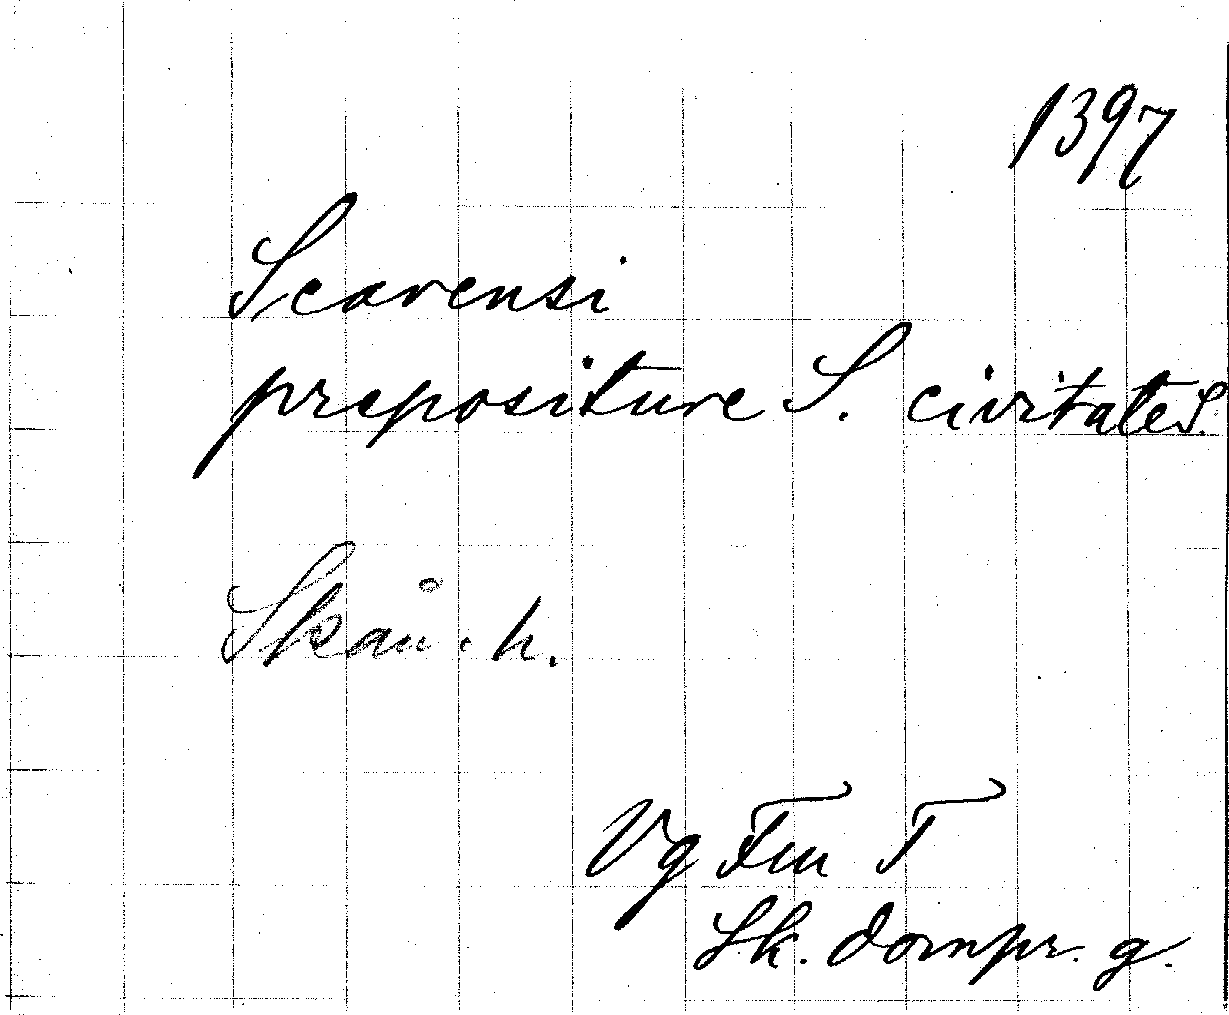 1397
Scarensi
prepositure S. civitate S.
Skån. h.
Vg Fm T
Sk. dompr. g.